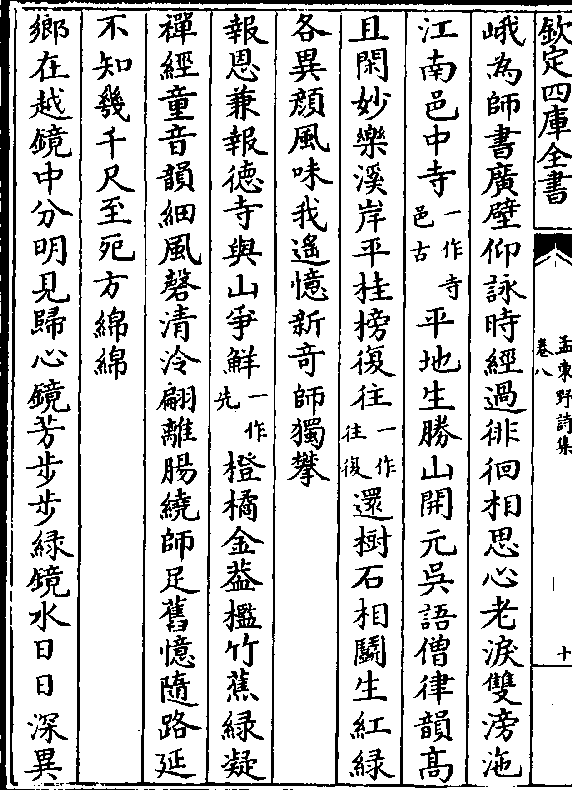 欽定四庫全書
孟東野詩集
卷八
十
峨為師書廣壁仰詠時經過徘徊相思心老淚雙滂沱
江南邑中寺一作寺邑古平地生勝山開元吳語僧律韻高
且閑妙樂溪岸平桂榜復往一作往復還樹石相鬭生紅緑
各異顔風味我遙憶新竒師獨攀
報恩兼報徳寺與山爭鮮一作先橙橘金葢檻竹蕉緑凝
禪經童音韻細風磬清泠翩離腸繞師足舊憶隨路延
不知幾千尺至死方綿綿
鄉在越鏡中分明見歸心鏡芳步步緑鏡水日日深異